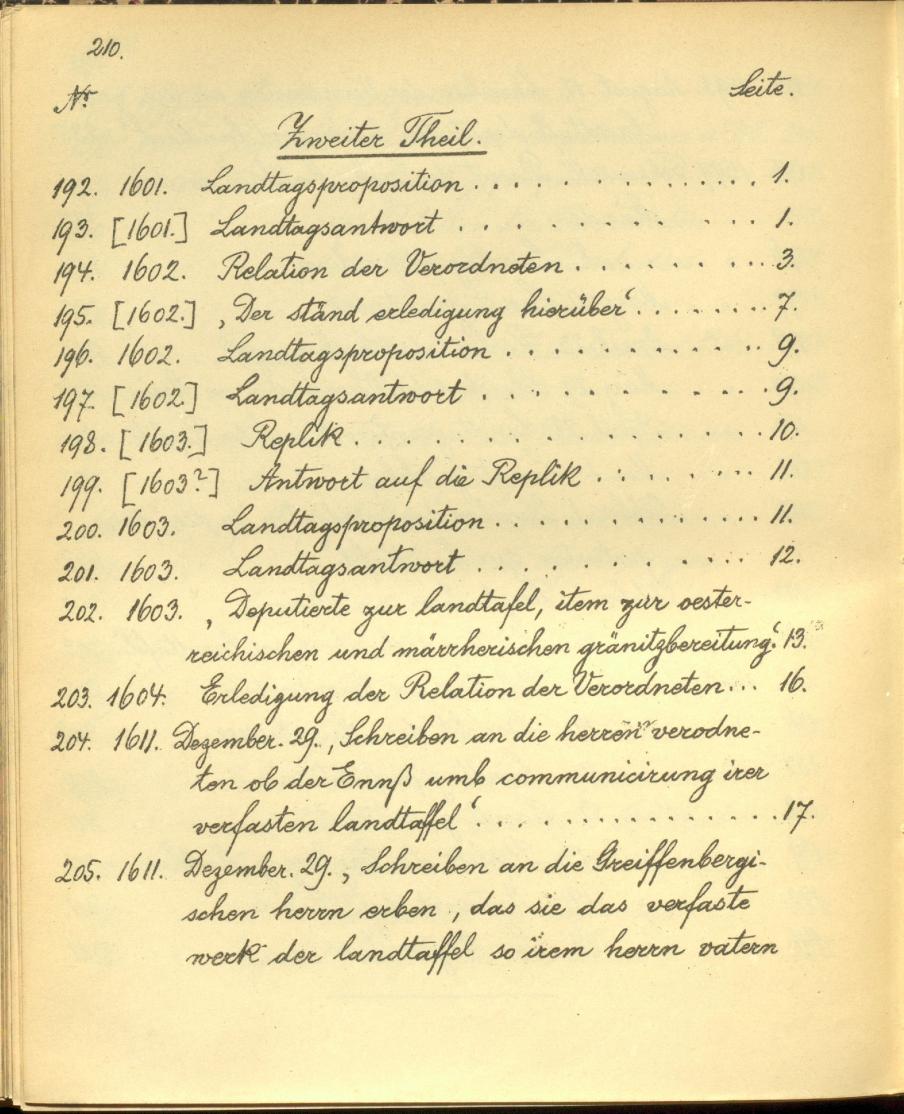 210.
Nr. Seite.
Zweiter Theil.
192. 1601. Landtagsproposition . . . . . . . . . . . . . . . 1.
193. [1601.] Landtagsantwort . . . . . . . . . . . . . 1.
194. 1602. Relation der Verordneten . . . . . . . . . 3.
195. [1602.] ‚Der ständ erledigung hierüber‘ . . . . . . . 7.
196. 1602. Landtagsproposition . . . . . . . . . . . . 9.
197. [1602.] Landtagsantwort . . . . . . . . . . . . . 9.
198. [1603.] Replik . . . . . . . . . . . . . . . . . . 10.
199. [1603?] Antwort auf die Replik . . . . . . . . 11.
200. 1603. Landtagsproposition . . . . . . . . . . . . 11.
201. 1603. Landtagsantwort . . . . . . . . . . . . . 12.
202. 1603. ‚Deputierte zur landtafel, item zur oester-
reichischen und märrherischen gränitzbereitung‘. 13.
203. 1604. Erledigung der Relation der Verordneten ... 16.
204. 1611. Dezember. 29. ‚Schreiben an die herren verodne-
ten ob der Ennß umb communicirung irer
verfasten landtaffel‘ . . . . . . . . . . . . . . . . 17.
205. 1611. Dezember. 29. ‚Schreiben an die Greiffenbergi-
schen herrn erben, das sie das verfaste
werk der landtaffel so irem herrn vatern